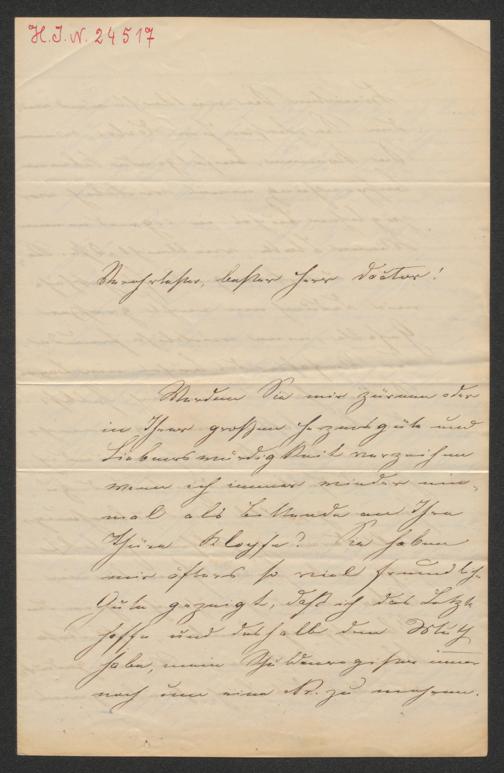 H.I.N. 24517
Verehrtester, bester Herr Doctor!
Werden Sie mir zürnen oder
in Ihrer großen Herzensgüte und
Liebenswürdigkeit verzeihen
wenn ich immer wieder ein-
mal als Bittende an Ihre
Thüre klopfe? Sie haben
mir öfters so viel freundliche
Güte gezeigt, daß ich das Letzte
hoffe und deshalb den Muth
habe, mein Schuldenregister immer
noch um eine Nr. zu mehren.